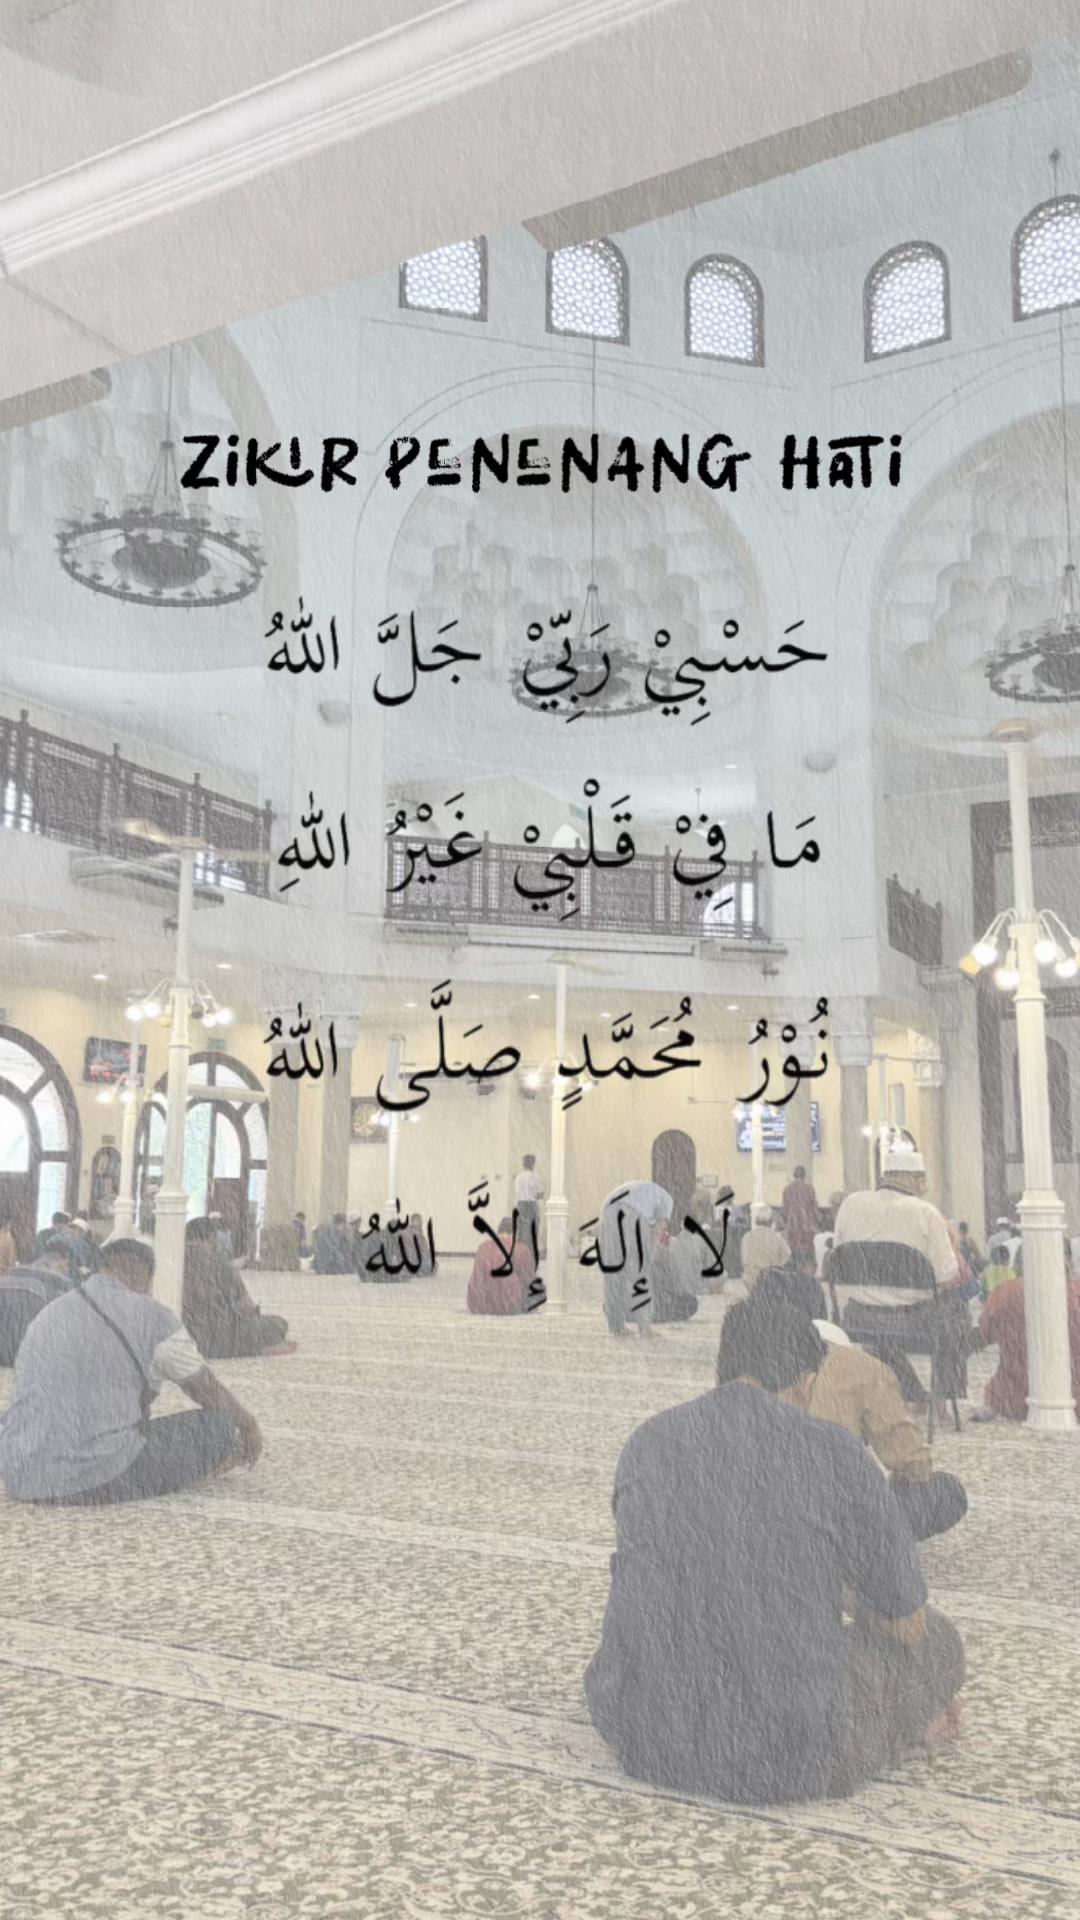 ZiKiR PENENANG HaTi
حَسْبِيْ رَبِّيْ جَلَّ اللّٰهُ
مَا فِيْ قَلْبِيْ غَيْرُ اللّٰهِ
نُوْرُ مُحَمَّدٍ صَلَّى اللّٰهُ
لَا إِلَهَ إِلاَّ اللّٰهُ